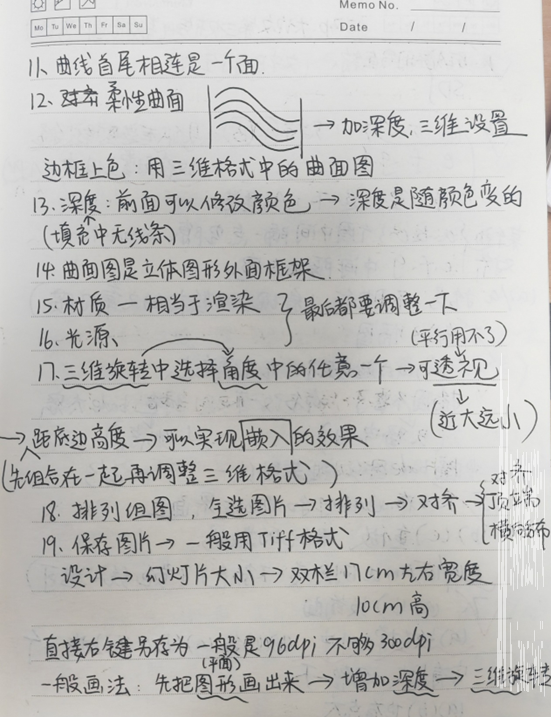 Memo No.
Mo Tu We Th Fr Sa Su
Date / /
11、曲线首尾相连是一个面.
12、柔性曲面 → 加深度,三维设置
边框上色:用三维格式中的曲面图
13、深度:前面可以修改颜色 → 深度是随颜色变的
(填充中无线条)
14 曲面图是立体图形外面框架.
15、材质 — 相当于渲染 } 最后都要调整一下
16、光源、
(平行用不了)
17、三维旋转中选择角度中的任意一个 → 可透视
↓
(近大远小)
→ 距底边高度 → 可以实现嵌入的效果
(先组合在一起再调整三维格式)
18、排列组图,全选图片 → 排列 → 对齐 →
对齐
横向分布
19、保存图片 → 一般用Tiff格式
设计 → 幻灯片大小 → 双栏17cm左右宽度
10cm高
直接右键另存为一般是96dpi 不够300dpi
(平面)
一般画法:先把图形画出来 → 增加深度 → 三维旋转